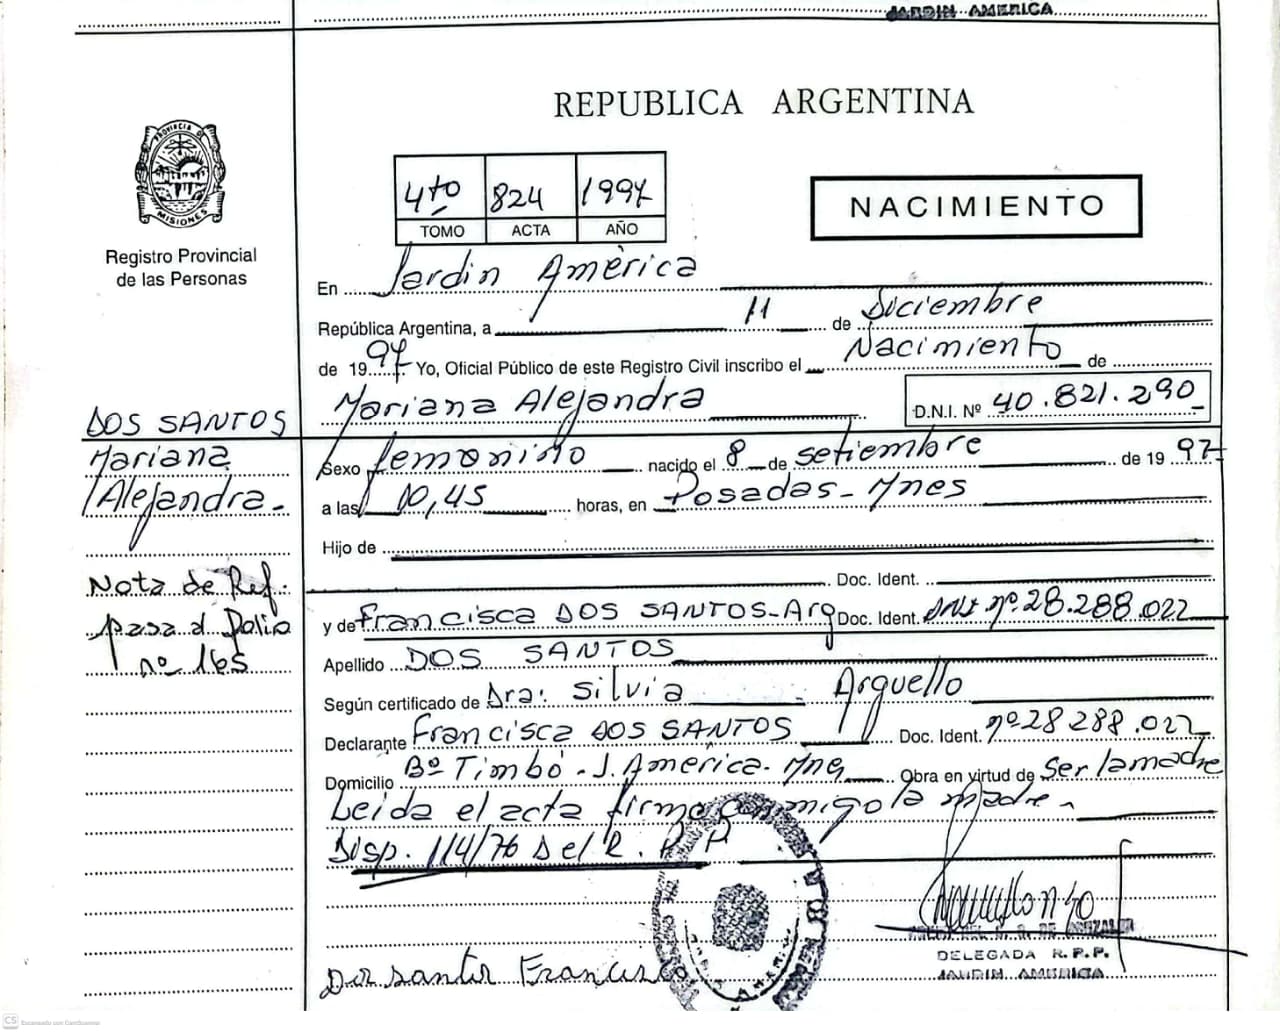 JARDIN AMERICA
REPUBLICA ARGENTINA
PROVINCIA DE
MISIONES
Registro Provincial
de las Personas
4to 824 1997
TOMO ACTA AÑO
NACIMIENTO
En Jardin América
República Argentina, a 11 de Diciembre
de 1997 Yo, Oficial Público de este Registro Civil inscribo el Nacimiento de
Mariana Alejandra D.N.I. Nº 40.821.290
Sexo femenino nacido el 8 de setiembre de 1997
a las 10,45 horas, en Posadas - Mnes
Hijo de
Doc. Ident.
y de Francisca DOS SANTOS - Arg Doc. Ident. DNI nº 28.288.022
Apellido DOS SANTOS
Según certificado de Dra: Silvia Arguello
Declarante Francisca DOS SANTOS Doc. Ident. nº 28 288.022
Domicilio Bº Timbó - J. America - Mnes Obra en virtud de Ser la madre
Leida el acta firma conmigo la madre -
Disp. 114/76 Del R. P. P
DOS SANTOS
Mariana
Alejandra -
Nota de Ref.
pasa al Folio
nº 165
Dos santos Francisca
DELEGADA R.P.P.
JARDIN AMERICA
CS Escaneado con CamScanner